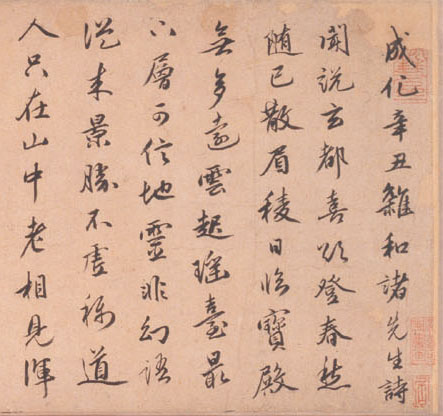 成化辛丑雜和諸先生詩
聞說玄都喜欲登春愁
随已散眉稜日临寶殿
無多遠雲起瑶臺最
下層可信地靈非幻語
從来景勝不虚稱道
人只在山中老相見渾